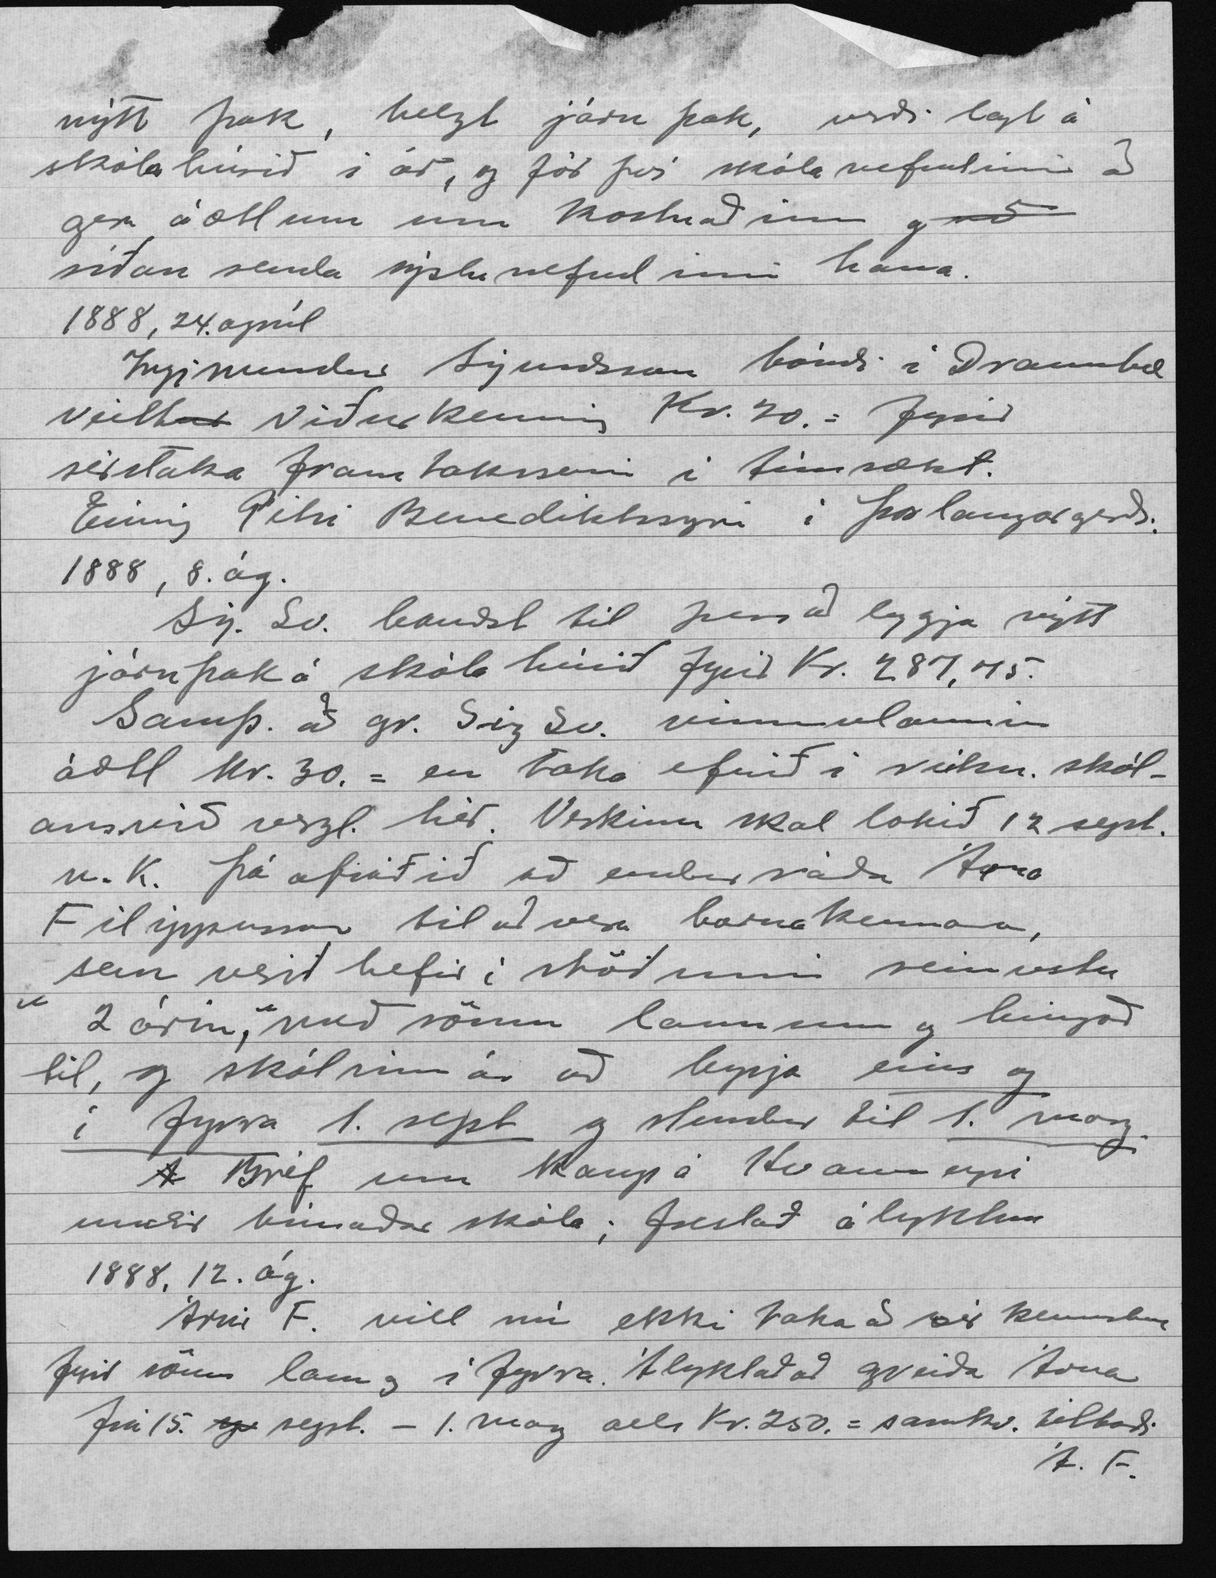 nýtt þak, helzt járn þak, verði lagt á
skólahúsið í ár, og fór því skólanefndinni að
gera áætlum um kostnaðinn og
síðan senda sýslunefndinni hana.
1888, 24. apríl
Ingimundur Sigurðsson bóndi í Draumbæ
veittur viðurkenning Kr. 20.= fyrir
sérstaka framtakssemi i túnrækt.
Einnig Petri Benediktssyni í Þorlaugargerði.
1888, 8. ág.
Sig. Sv. bauðst til þess að leggja nýtt
járnþak á skólahúsið fyrir Kr. 287,75.
Samþ. að gr. Sig Sv. vinnulaunin
áætl Kr. 30.= en taka efnið í reikn. skól-
ans við verzl. hér. Verkinu skal lokið 12 sept.
n.k. Þá afráðið að endurráða Árna
Filippusson til að vera barnakennara,
sem verið hefir í stöðunni seinustu
" 2 árin," með sömu launum og hingað
til, og skólinn á að byrja eins og
í fyrra 1. sept og stendur til 1. maí.
Bréf um kaup á Hvanneyri
undir búnaðarskóla; frestað ályktun
1888, 12. ág.
Árni F. vill nú ekki taka að sér kennsluna
fyrir sömu laun og í fyrra. Ályktað að greiða Árna
frá 15. sept. - 1. maí alls Kr. 250.= samkv. tilboði
Á. F.